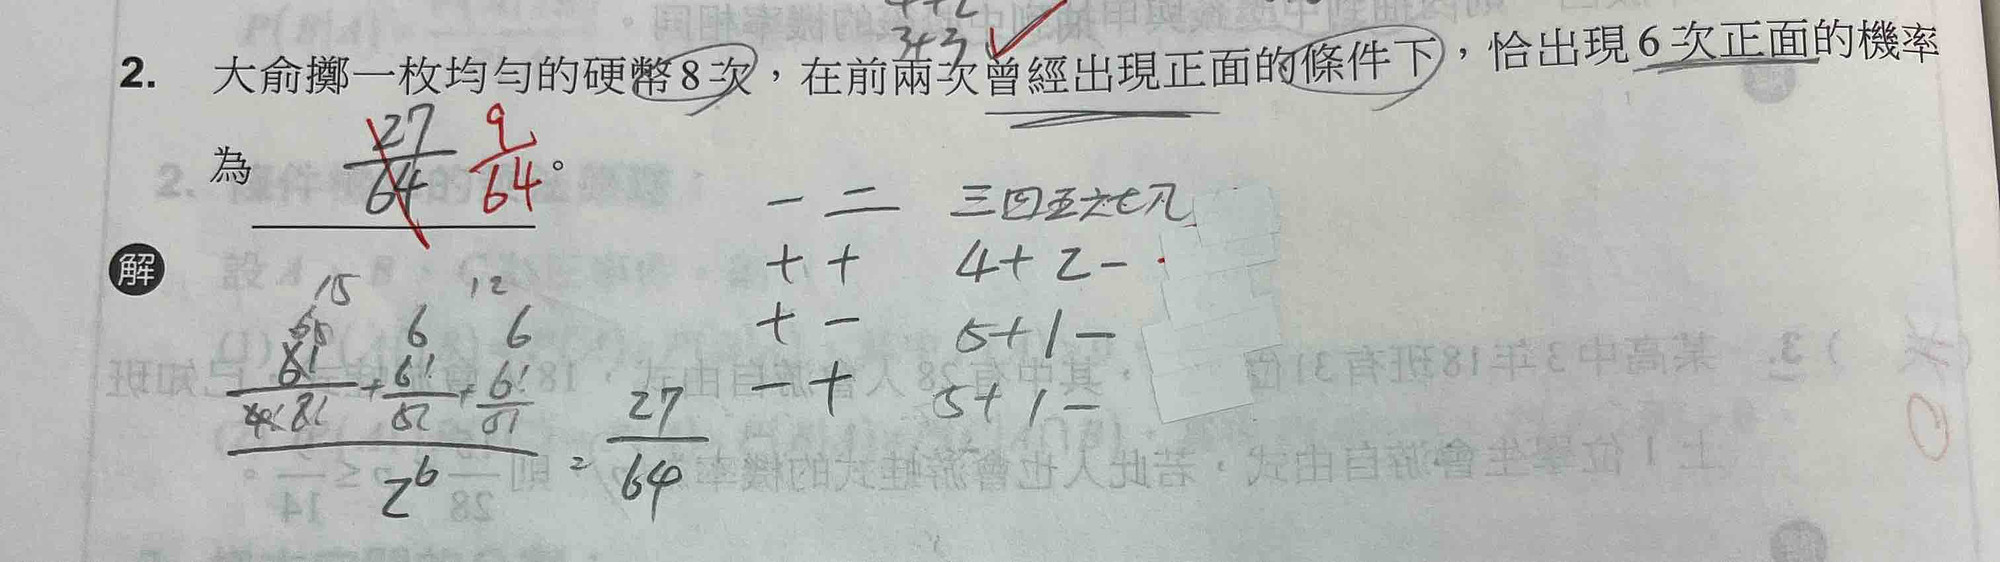 4+2
3+3
2. 大俞擲一枚均勻的硬幣8次，在前兩次曾經出現正面的條件下，恰出現6次正面的機率
為 27/64 9/64 。
一 二 三四五六七八
+ + 4+ 2-
+ - 5+ 1-
- + 5+ 1-
解
15 12
6 6
6! + 6! + 6!
5! 5!
2^6
= 27/64